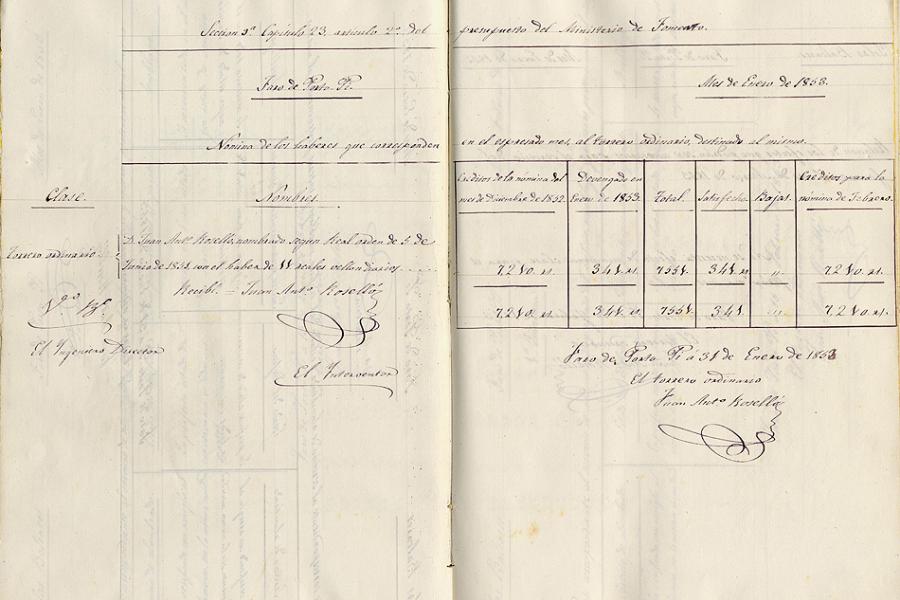 Seccion 3ª Capítulo 23, artículo 2º del presupuesto del Ministerio de Fomento.
Faro de Porto-Pi.
Mes de Enero de 1853.
Nómina de los haberes que corresponden en el espresado mes, al torrero ordinario, destinado al mismo.
Clase. Nombres.
Créditos de la nómina del mes de Diciembre de 1852. Devengado en Enero de 1853. Total. Satisfecho. Bajas. Créditos para la nómina de Febrero.
Torrero ordinario. D. Juan Antº Roselló, nombrado segun Real orden de 5 de
Junio de 1851 con el haber de 11 reales vellon diarios. 7210 rs. 341 rs. 7551. 341 rs. " 7210 rs.
Recibí. = Juan Antº Roselló 7210 rs. 341 rs. 7551. 341. " 7210 rs.
Vº Bº
El Ingeniero Director
El Interventor
Faro de Porto Pi a 31 de Enero de 1853
El torrero ordinario
Juan Antº Roselló